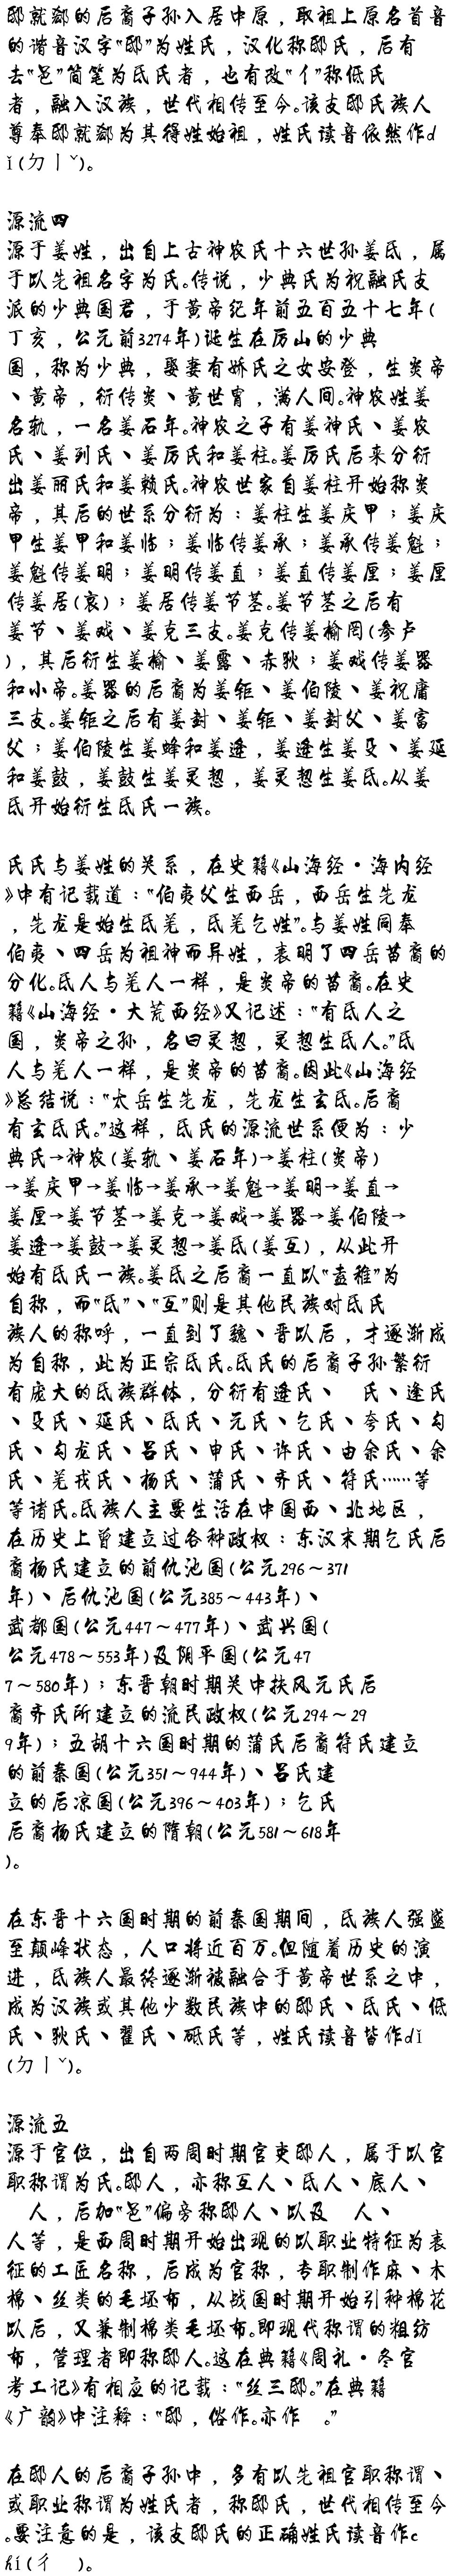 邸就鄒的后裔子孙入居中原，取祖上原名首音
的谐音汉字“邸”为姓氏，汉化称邸氏，后有
去“邑”简笔为氐氏者，也有改“亻”称低氏
者，融入汉族，世代相传至今。该支邸氏族人
尊奉邸就鄒为其得姓始祖，姓氏读音依然作d
ǐ(ㄉㄧˇ)。
源流四
源于姜姓，出自上古神农氏十六世孙姜氐，属
于以先祖名字为氏。传说，少典氏为祝融氏支
派的少典国君，于黄帝纪年前五百五十七年(
丁亥，公元前3274年)诞生在厉山的少典
国，称为少典，娶妻有娇氏之女安登，生炎帝
、黄帝，衍传炎、黄世胄，满人间。神农姓姜
名轨，一名姜石年。神农之子有姜神氏、姜农
氏、姜列氏、姜厉氏和姜柱。姜厉氏后来分衍
出姜丽氏和姜赖氏。神农世家自姜柱开始称炎
帝，其后的世系分衍为：姜柱生姜庆甲；姜庆
甲生姜甲和姜临；姜临传姜承；姜承传姜魁；
姜魁传姜明；姜明传姜直；姜直传姜厘；姜厘
传姜居(哀)；姜居传姜节茎。姜节茎之后有
姜节、姜戏、姜克三支。姜克传姜榆罔(参卢
)，其后衍生姜榆、姜露、赤狄；姜戏传姜器
和小帝。姜器的后裔为姜钜、姜伯陵、姜祝庸
三支。姜钜之后有姜封、姜钜、姜封父、姜富
父；姜伯陵生姜蜂和姜逄，姜逄生姜殳、姜延
和姜鼓，姜鼓生姜灵恝，姜灵恝生姜氐。从姜
氐开始衍生氐氏一族。
氐氏与姜姓的关系，在史籍《山海经·海内经
》中有记载道：“伯夷父生西岳，西岳生先龙
，先龙是始生氐羌，氐羌乞姓”。与姜姓同奉
伯夷、四岳为祖神而异姓，表明了四岳苗裔的
分化。氐人与羌人一样，是炎帝的苗裔。在史
籍《山海经·大荒西经》又记述：“有氐人之
国，炎帝之孙，名曰灵恝，灵恝生氐人。”氐
人与羌人一样，是炎帝的苗裔。因此《山海经
》总结说：“太岳生先龙，先龙生玄氐。后裔
有玄氐氏。”这样，氐氏的源流世系便为：少
典氏→神农(姜轨、姜石年)→姜柱(炎帝)
→姜庆甲→姜临→姜承→姜魁→姜明→姜直→
姜厘→姜节茎→姜克→姜戏→姜器→姜伯陵→
姜逄→姜鼓→姜灵恝→姜氐(姜互)，从此开
始有氐氏一族。姜氐之后裔一直以“盍稚”为
自称，而“氐”、“互”则是其他民族对氐氏
族人的称呼，一直到了魏、晋以后，才逐渐成
为自称，此为正宗氐氏。氐氏的后裔子孙繁衍
有庞大的氐族群体，分衍有逄氏、　氏、逢氏
、殳氏、延氏、氐氏、元氏、乞氏、夸氏、勾
氏、勾龙氏、吕氏、申氏、许氏、由余氏、余
氏、羌戎氏、杨氏、蒲氏、齐氏、符氏……等
等诸氏。氐族人主要生活在中国西、北地区，
在历史上曾建立过各种政权：东汉末期乞氏后
裔杨氏建立的前仇池国(公元296～371
年)、后仇池国(公元385～443年)、
武都国(公元447～477年)、武兴国(
公元478～553年)及阴平国(公元47
7～580年)；东晋朝时期关中扶风元氏后
裔齐氏所建立的流民政权(公元294～29
9年)；五胡十六国时期的蒲氏后裔符氏建立
的前秦国(公元351～944年)、吕氏建
立的后凉国(公元396～403年)；乞氏
后裔杨氏建立的隋朝(公元581～618年
)。
在东晋十六国时期的前秦国期间，氐族人强盛
至颠峰状态，人口将近百万。但随着历史的演
进，氐族人最终逐渐被融合于黄帝世系之中，
成为汉族或其他少数民族中的邸氏、氐氏、低
氏、狄氏、翟氏、砥氏等，姓氏读音皆作dǐ
(ㄉㄧˇ)。
源流五
源于官位，出自两周时期官吏邸人，属于以官
职称谓为氏。邸人，亦称互人、氐人、底人、
　人，后加“邑”偏旁称邸人、以及　人、
人等，是西周时期开始出现的以职业特征为表
征的工匠名称，后成为官称，专职制作麻、木
棉、丝类的毛坯布，从战国时期开始引种棉花
以后，又兼制棉类毛坯布。即现代称谓的粗纺
布，管理者即称邸人。这在典籍《周礼·冬官
考工记》有相应的记载：“丝三邸。”在典籍
《广韵》中注释：“邸，俗作。亦作　。”
在邸人的后裔子孙中，多有以先祖官职称谓、
或职业称谓为姓氏者，称邸氏，世代相传至今
。要注意的是，该支邸氏的正确姓氏读音作c
hǐ(彳　)。